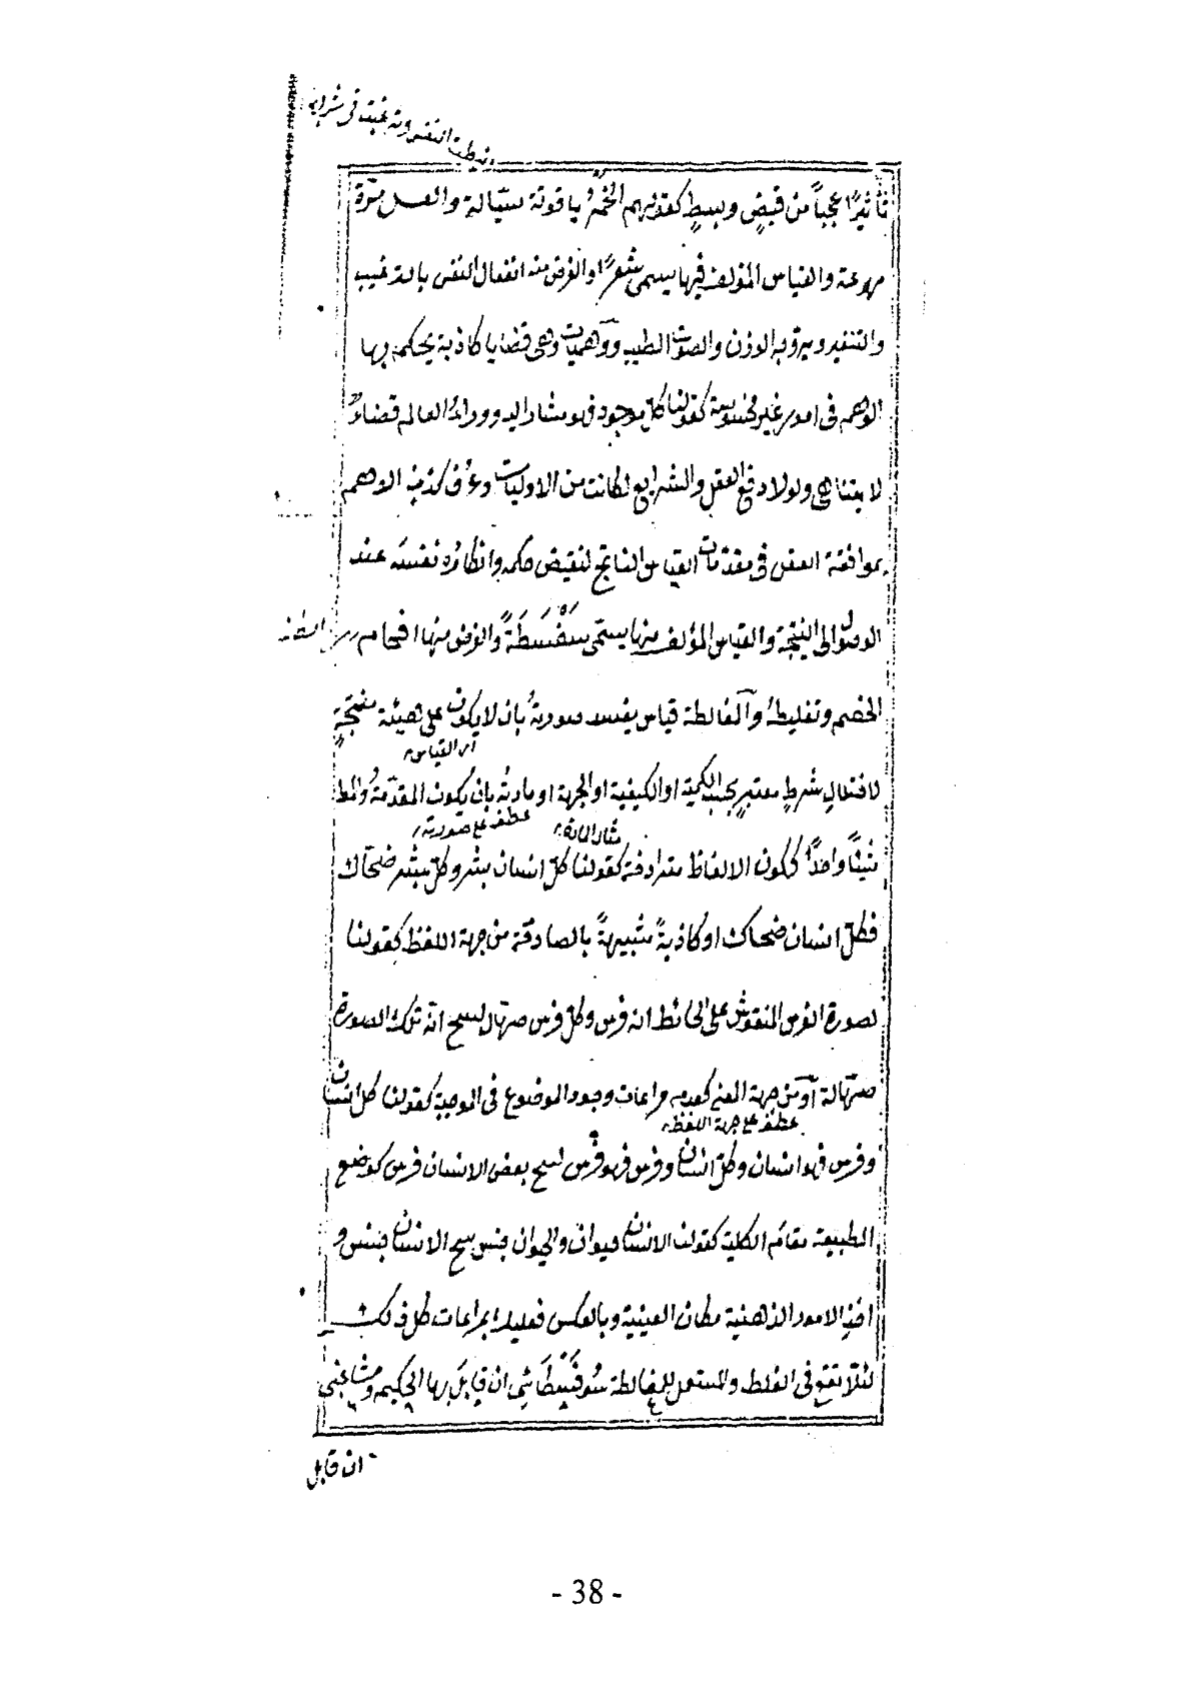 انبسطت النفس ورغبت في شربها
تأثيرًا عجيباً من قبضٍ وبسطٍ كقولهم الخمرُ ياقوتة سيّالة والعسل مرّة
مهوعة والقياس المؤلف فيها يسمى شعرًا والغرض منه انفعال النفس بالترغيب
والتنفير ويروّجه الوزن والصوت الطيب ووهميات وهي قضايا كاذبة يحكم بها
الوهم في امور غير محسوسة كقولنا كلّ موجود فهو مشار اليه ووراءُ العالم فضاءٌ
لا يتناهي ولولا دفع العقل والشرايع لكانت من الاوليات وعُرف كذب الوهم
بموافقة العقل في مقدّمات القياس الناتج لنقيض حكمه وانكارُه نفسَه عند
الوصول الى النتيجة والقياس المؤلف منها يسمّى سَفْسَطَةً والغرض منها افحام
الخصم وتغليطُه والمغالطة قياس يفسد صورتهُ بان لا يكون على هيئة منتجَةٍ
اى القياس
لاختلالِ شرطٍ معتبرٍ بحسب الكمية او الكيفية او الجهة او مادتهُ بان يكون المقدّمةُ والمط
عطف على صورته
مثال المادة
شيئًا واحدًا ككون الالفاظ مترادفة كقولنا كلّ انسان بشر وكلّ بشر ضحّاك
فكلّ انسان ضحاك او كاذبةً شبيهةً بالصادقة من جهة اللفظ كقولنا
لصورة الفرس المنقوش على الحائط انه فرس وكلّ فرس صهّال لينتج انّ تلك الصورة
صهّالة او من جهة المعنى كعدم مراعات وجود الموضوع في الموجبة كقولنا كل انسان
عطف على جهة اللفظ
وفرس فهو انسان وكلّ انسان وفرس فهو فرس لينتج بعض الانسان فرس كوضع
الطبيعية مقام الكلية كقولنا الانسان حيوان والحيوان جنس ينتج الانسان جنس و
اخذِ الامور الذهنية مكان العينية وبالعكس فعليك بمراعات كل ذلك
لئلا تقع في الغلط والمستعمل للمغالطة سُوفَسْطَائي ان قابل بها الحكيم ومشاغبي
ان قابل
- 38 -